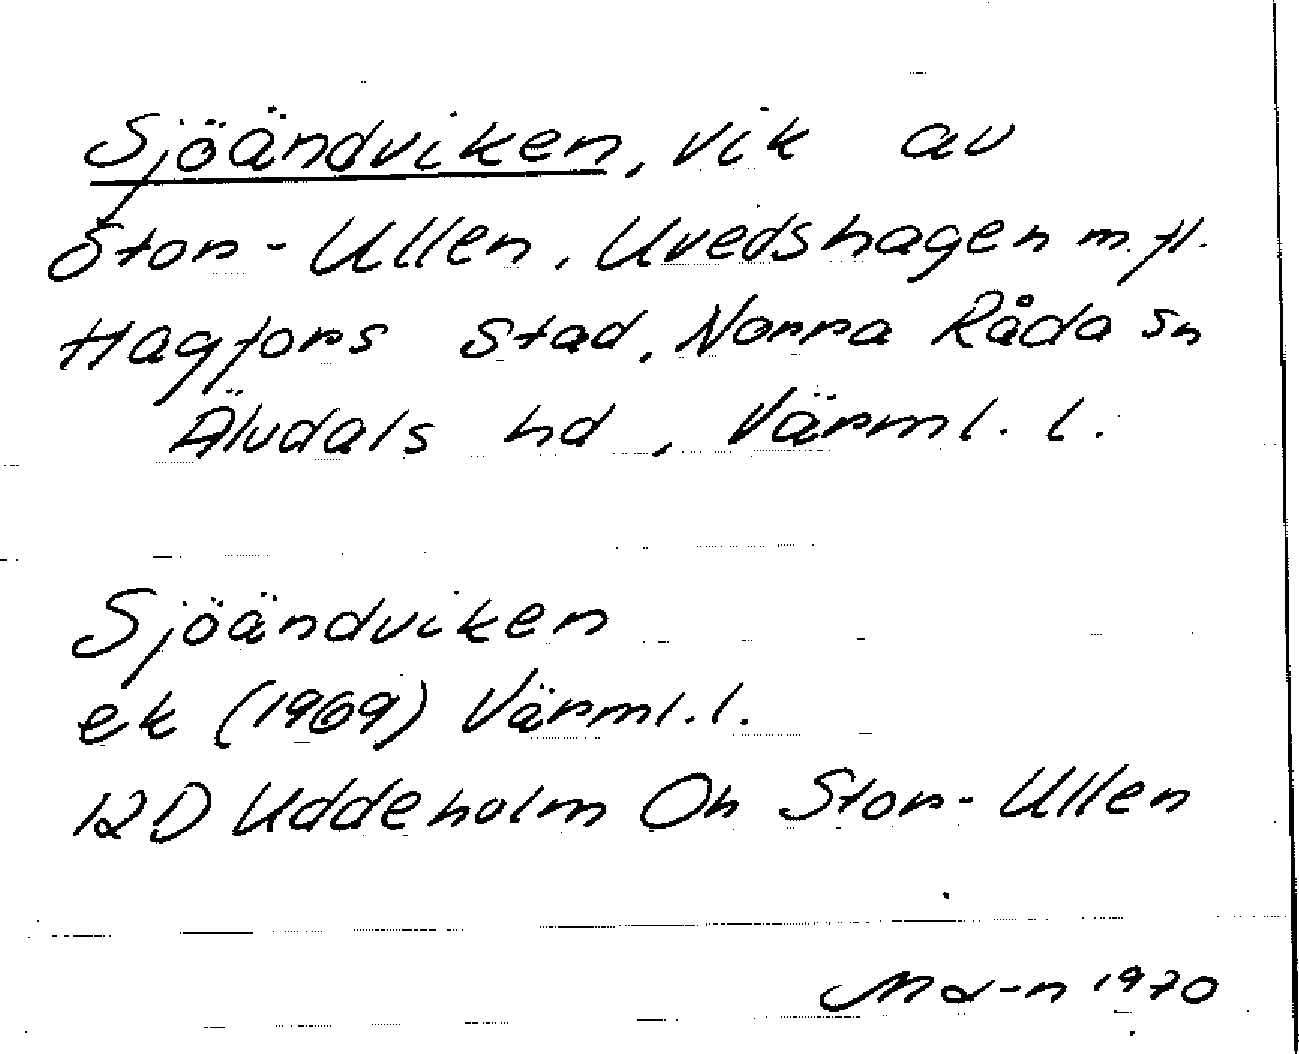 Sjöändviken, vik av
Stor-Ullen, Uvedshagen m. fl.
Hagfors stad, Norra Råda sn
Älvdals hd, Värml. l.
Sjöändviken
ek (1969) Värml. l.
12D Uddeholm Oh Stor-Ullen
1970